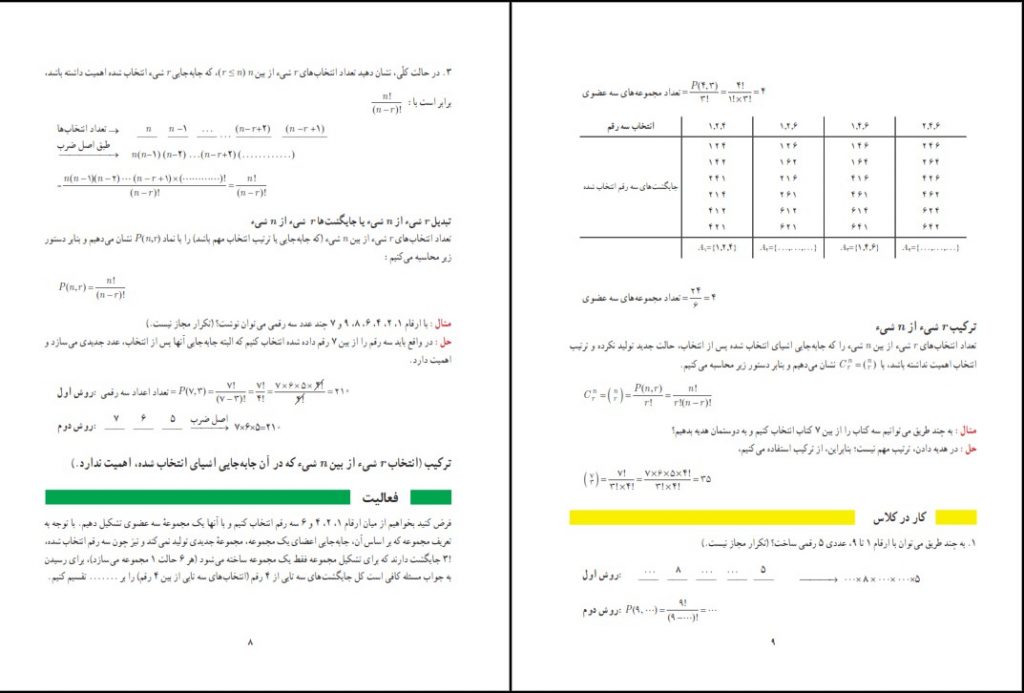 ۳. در حالت کلّی، نشان دهید تعداد انتخاب‌های r شیء از بین n (r ≤ n)، که جابه‌جایی r شیء انتخاب شده اهمیت داشته باشد،
برابر است با : n!/(n−r)!
تعداد انتخاب‌ها → n n−۱ ... ... (n−r+۲) (n−r+۱)
طبق اصل ضرب → n(n−۱)(n−۲) ...(n−r+۲)(............)
= n(n−۱)(n−۲)⋯(n−r+۱)×(⋯⋯⋯⋯)!/(n−r)! = n!/(n−r)!
تبدیل r شیء از n شیء یا جایگشت‌ها r شیء از n شیء
تعداد انتخاب‌های r شیء از بین n شیء (که جابه‌جایی یا ترتیب انتخاب مهم باشد) را با نماد P(n,r) نشان می‌دهیم و بنابر دستور
زیر محاسبه می‌کنیم :
P(n,r)= n!/(n−r)!
مثال : با ارقام ۱، ۲، ۴، ۶، ۸، ۹ و ۷ چند عدد سه رقمی می‌توان نوشت؟ (تکرار مجاز نیست.)
حل : در واقع باید سه رقم را از بین ۷ رقم داده شده انتخاب کنیم که البته جابه‌جایی آنها پس از انتخاب، عدد جدیدی می‌سازد و
اهمیت دارد.
روش اول: تعداد اعداد سه رقمی = P(۷,۳) = ۷!/(۷−۳)! = ۷!/۴! = ۷×۶×۵×۴!/۴! = ۲۱۰
روش دوم: ۷ ۶ ۵ اصل ضرب → ۷×۶×۵=۲۱۰
ترکیب (انتخاب r شیء از بین n شیء که در آن جابه‌جایی اشیای انتخاب شده، اهمیت ندارد.)
فعالیت
فرض کنید بخواهیم از میان ارقام ۱، ۲، ۴ و ۶ سه رقم انتخاب کنیم و با آنها یک مجموعهٔ سه عضوی تشکیل دهیم. با توجه به
تعریف مجموعه که بر اساس آن، جابه‌جایی اعضای یک مجموعه، مجموعهٔ جدیدی تولید نمی‌کند و نیز چون سه رقم انتخاب شده،
۳! جایگشت دارند که برای تشکیل مجموعه فقط یک مجموعه ساخته می‌شود (هر ۶ حالت ۱ مجموعه می‌سازد)، برای رسیدن
به جواب مسئله کافی است کل جایگشت‌های سه تایی از ۴ رقم (انتخاب‌های سه تایی از بین ۴ رقم) را بر ....... تقسیم کنیم.
۸
تعداد مجموعه‌های سه عضوی = P(۴,۳)/۳! = ۴!/۱!×۳! = ۴
انتخاب سه رقم ۱,۲,۴ ۱,۲,۶ ۱,۴,۶ ۲,۴,۶
جایگشت‌های سه رقم انتخاب شده
۱۲۴ ۱۲۶ ۱۴۶ ۲۴۶
۱۴۲ ۱۶۲ ۱۶۴ ۲۶۴
۲۴۱ ۲۱۶ ۴۱۶ ۴۲۶
۲۱۴ ۲۶۱ ۴۶۱ ۴۶۲
۴۱۲ ۶۱۲ ۶۱۴ ۶۲۴
۴۲۱ ۶۲۱ ۶۴۱ ۶۴۲
A₁={۱,۲,۴} A₂={...,...,...} A₃={۱,۴,۶} A₄={...,...,...}
تعداد مجموعه‌های سه عضوی = ۲۴/۶ = ۴
ترکیب r شیء از n شیء
تعداد انتخاب‌های r شیء از بین n شیء را که جابه‌جایی اشیای انتخاب شده پس از انتخاب، حالت جدید تولید نکرده و ترتیب
انتخاب اهمیت نداشته باشد، با C(n r)=(n r) نشان می‌دهیم و بنابر دستور زیر محاسبه می‌کنیم.
C(n r)=(n r)= P(n,r)/r! = n!/r!(n−r)!
مثال : به چند طریق می‌توانیم سه کتاب را از بین ۷ کتاب انتخاب کنیم و به دوستمان هدیه بدهیم؟
حل : در هدیه دادن، ترتیب مهم نیست؛ بنابراین، از ترکیب استفاده می‌کنیم.
(۷ ۳)= ۷!/۳!×۴! = ۷×۶×۵×۴!/۳!×۴! = ۳۵
کار در کلاس
۱. به چند طریق می‌توان با ارقام ۱ تا ۹، عددی ۵ رقمی ساخت؟ (تکرار مجاز نیست.)
روش اول: ... ۸ ... ... ۵ → ⋯×۸×⋯×⋯×۵
روش دوم: P(۹,⋯)= ۹!/(۹−⋯)! = ⋯
۹